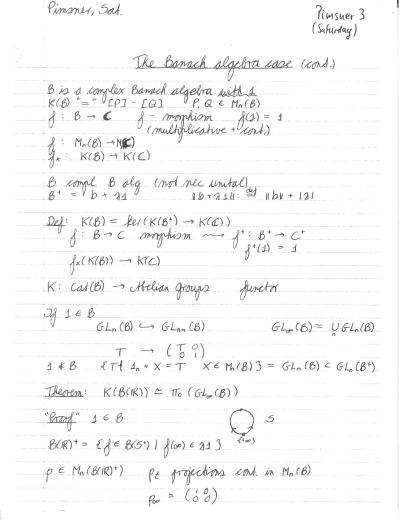 Pimsner, Sat.
Pimsner 3
(Saturday)
The Banach algebra case (cont.)
B is a complex Banach algebra with 1
K(B) "=" [P] - [Q]   P, Q ∈ Mn(B)
f : B → C   f - morphism   f(1) = 1
(multiplicative + cont.)
f : Mn(B) → Mn(C)
f* : K(B) → K(C)
B compl B alg (not nec unital)
B⁺ = b + λ1   ||b + λ1|| def= ||b|| + |λ|
Def: K(B) = ker(K(B⁺) → K(C))
f : B → C morphism ⇝ f⁺ : B⁺ → C⁺
f⁺(1) = 1
f*(K(B)) → K(C)
K : Cat(B) → Abelian Groups   functor
If 1 ∈ B
GLn(B) ↪ GLn+1(B)   GL∞(B) = ∪n GLn(B)
T → (T 0
0 1)
1 ∉ B   {T | 1n + X = T   X ∈ Mn(B)} = GLn(B) ⊂ GLn(B⁺)
Theorem: K(B(ℝ)) ≃ π0(GL∞(B))
"Proof" 1 ∈ B   S
{∞}
B(ℝ)⁺ = {f ∈ B(S¹) | f(∞) ∈ λ1}
p ∈ Mn(B(ℝ)⁺)   pt projections cont. in Mn(B)
p∞ = (1 0
0 0)